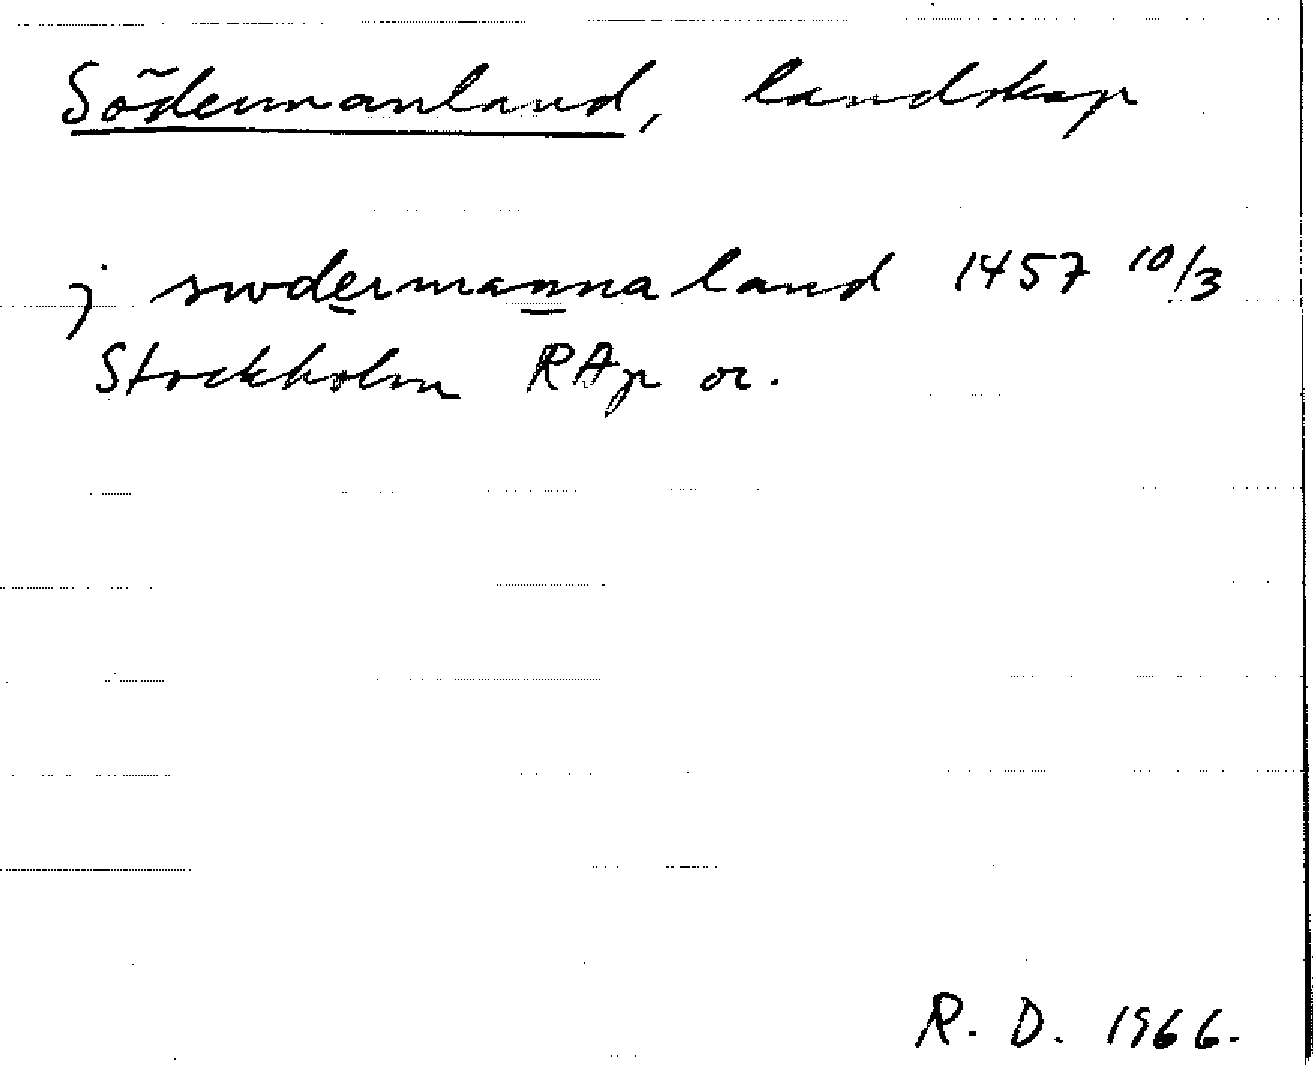 Södermanland, landskap
j swdermannaland 1457 10/3
Stockholm RAp or.
R. D. 1966.